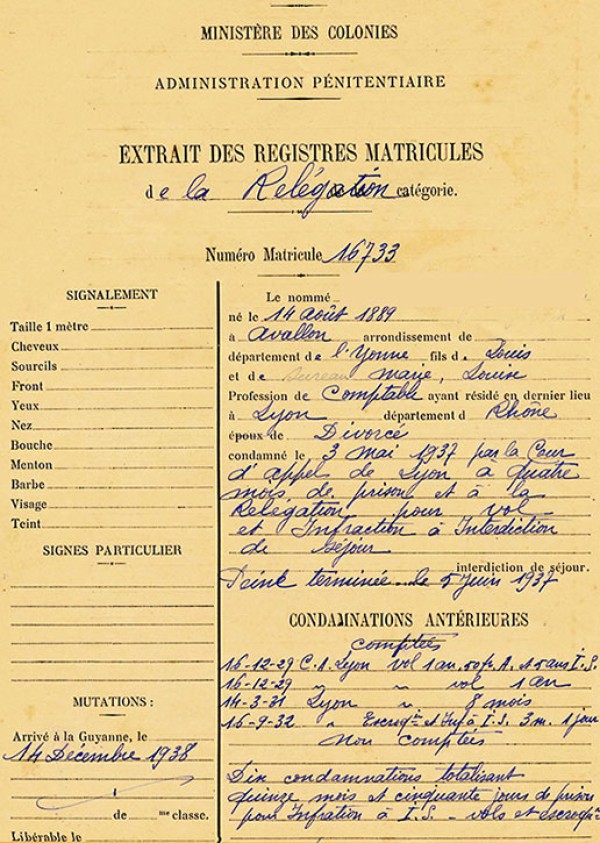 MINISTÈRE DES COLONIES
ADMINISTRATION PÉNITENTIAIRE
EXTRAIT DES REGISTRES MATRICULES
de la Relégation catégorie.
Numéro Matricule 16733
SIGNALEMENT
Taille 1 mètre
Cheveux
Sourcils
Front
Yeux
Nez
Bouche
Menton
Barbe
Visage
Teint
SIGNES PARTICULIER
MUTATIONS :
Arrivé à la Guyanne, le
14 Décembre 1938
de me classe.
Libérable le
Le nommé
né le 14 août 1889
à Avallon arrondissement de
département de l'Yonne fils de Louis
et de Bureau Marie, Louise
Profession de Comptable ayant résidé en dernier lieu
à Lyon département d Rhône
époux de Divorcé
condamné le 3 mai 1937 par la Cour
d'appel de Lyon à quatre
mois de prison et à la
Relégation pour vol
et Infraction à Interdiction
de Séjour
interdiction de séjour.
Peine terminée le 5 Juin 1937
CONDAMNATIONS ANTÉRIEURES
comptées
16-12-29 C.A. Lyon vol 1 an. 50 fr. A. et 5 ans I.S.
16-12-29 " " vol 1 an
14-3-31 Lyon " 8 mois
16-9-32 " Escroqie et Inf à I.S. 3 m. 1 jour
Non comptées
Dix condamnations totalisant
quinze mois et cinquante jours de prison
pour Infration à I.S - vols et escroqie